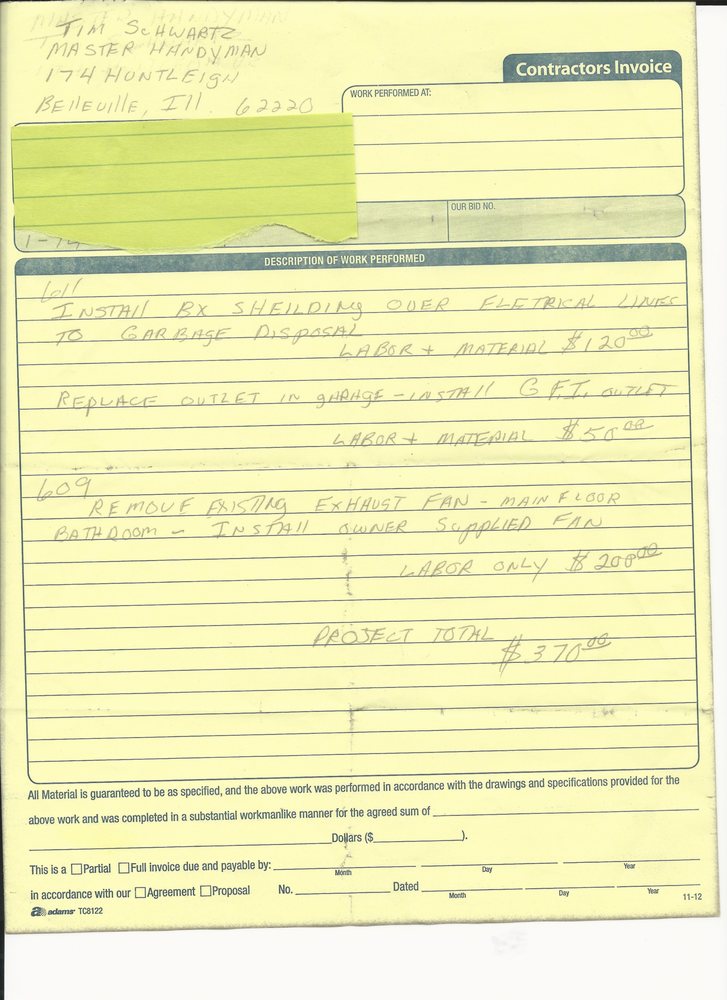 TIM SCHWARTZ
MASTER HANDYMAN
174 HUNTLEIGH
BEllEVIllE, Ill. 62220
Contractors Invoice
WORK PERFORMED AT:
OUR BID NO.
DESCRIPTION OF WORK PERFORMED
611
INSTAll BX SHEILDING OVER ELETRICAL LINES
TO GARBAGE DISPOSAL
LABOR + MATERIAL $120.00
REPLACE OUTLET IN gARAGE - INSTAll G.F.I. OUTLET
LABOR + MATERIAL $50.00
609
REMOVE EXISTING EXHAUST FAN - MAIN FLOOR
BATHROOM - INSTAll OWNER SUPPLIED FAN
LABOR ONLY $200.00
PROJECT TOTAL
$370.00
All Material is guaranteed to be as specified, and the above work was performed in accordance with the drawings and specifications provided for the
above work and was completed in a substantial workmanlike manner for the agreed sum of
Dollars ($ ).
This is a Partial Full invoice due and payable by:
Month Day Year
in accordance with our Agreement Proposal No. Dated
Month Day Year
adams TC8122
11-12